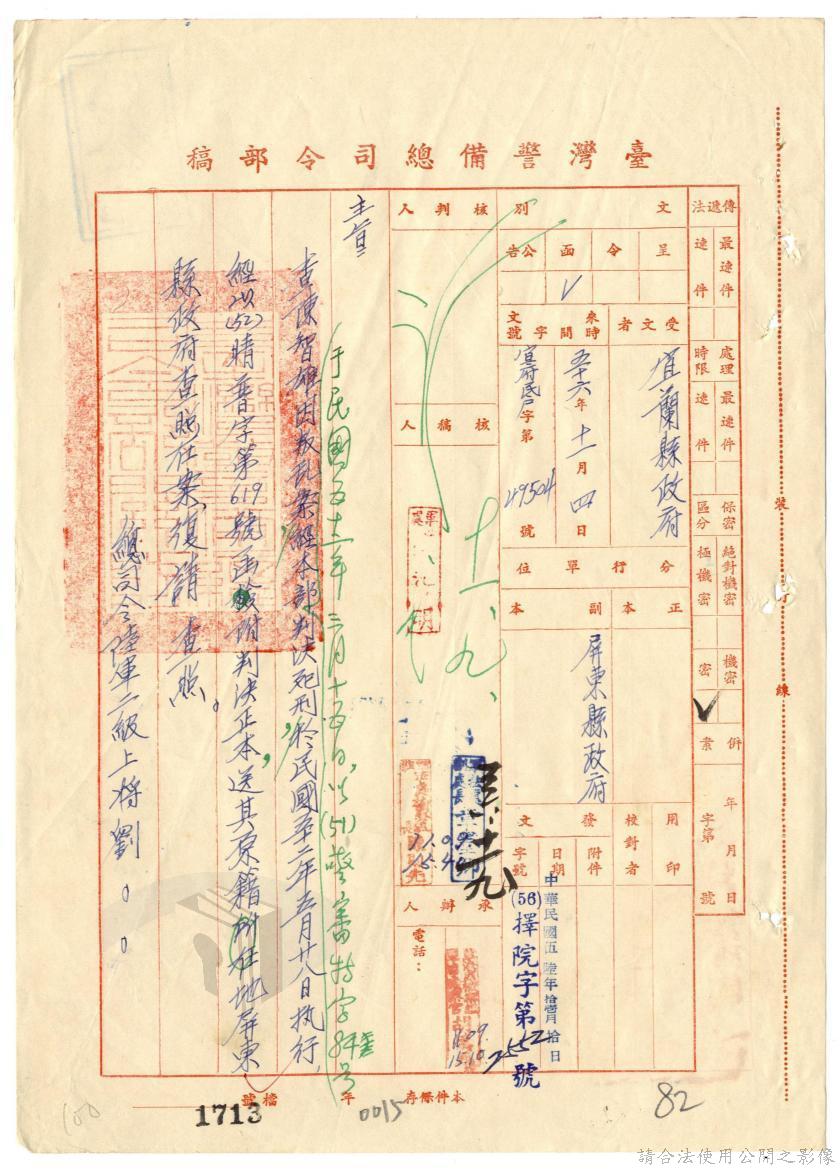 臺灣警備總司令部稿
傳遞法
最速件
速件
處理時限
最速件
速件
保密區分
絕對機密
極機密
機密
密
併案
年 月 日
字第 號
文別
呈
令
函
公告
受文者
宜蘭縣政府
來文
時間
五十六年十一月四日
字號
宜府民戶字第49504號
分行單位
正本
副本
屏東縣政府
用印
校對者
發文
附件
日期
中華民國伍陸年拾壹月拾日
字號
(56)擇院字第2552號
核判人
核稿人
十一、九、
承辦人
電話：
主旨
于民國五十二年三月十五日以(51)警審特字第
查陳智雄因叛乱案經本部判決死刑,於民國五十二年五月廿八日执行,
經以(52)晴普字第619號函檢附判决正本,送其原籍所在地屏東
縣政府查照在案,復請 查照。
總司令陸軍二級上將劉○○
本件條存 年
0015
檔號
1713
82
100
裝 訂 線
請合法使用公開之影像